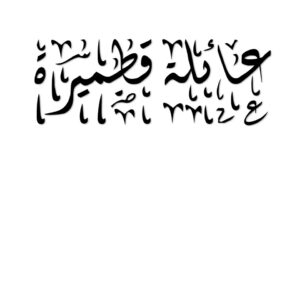 عائلة قطميرة